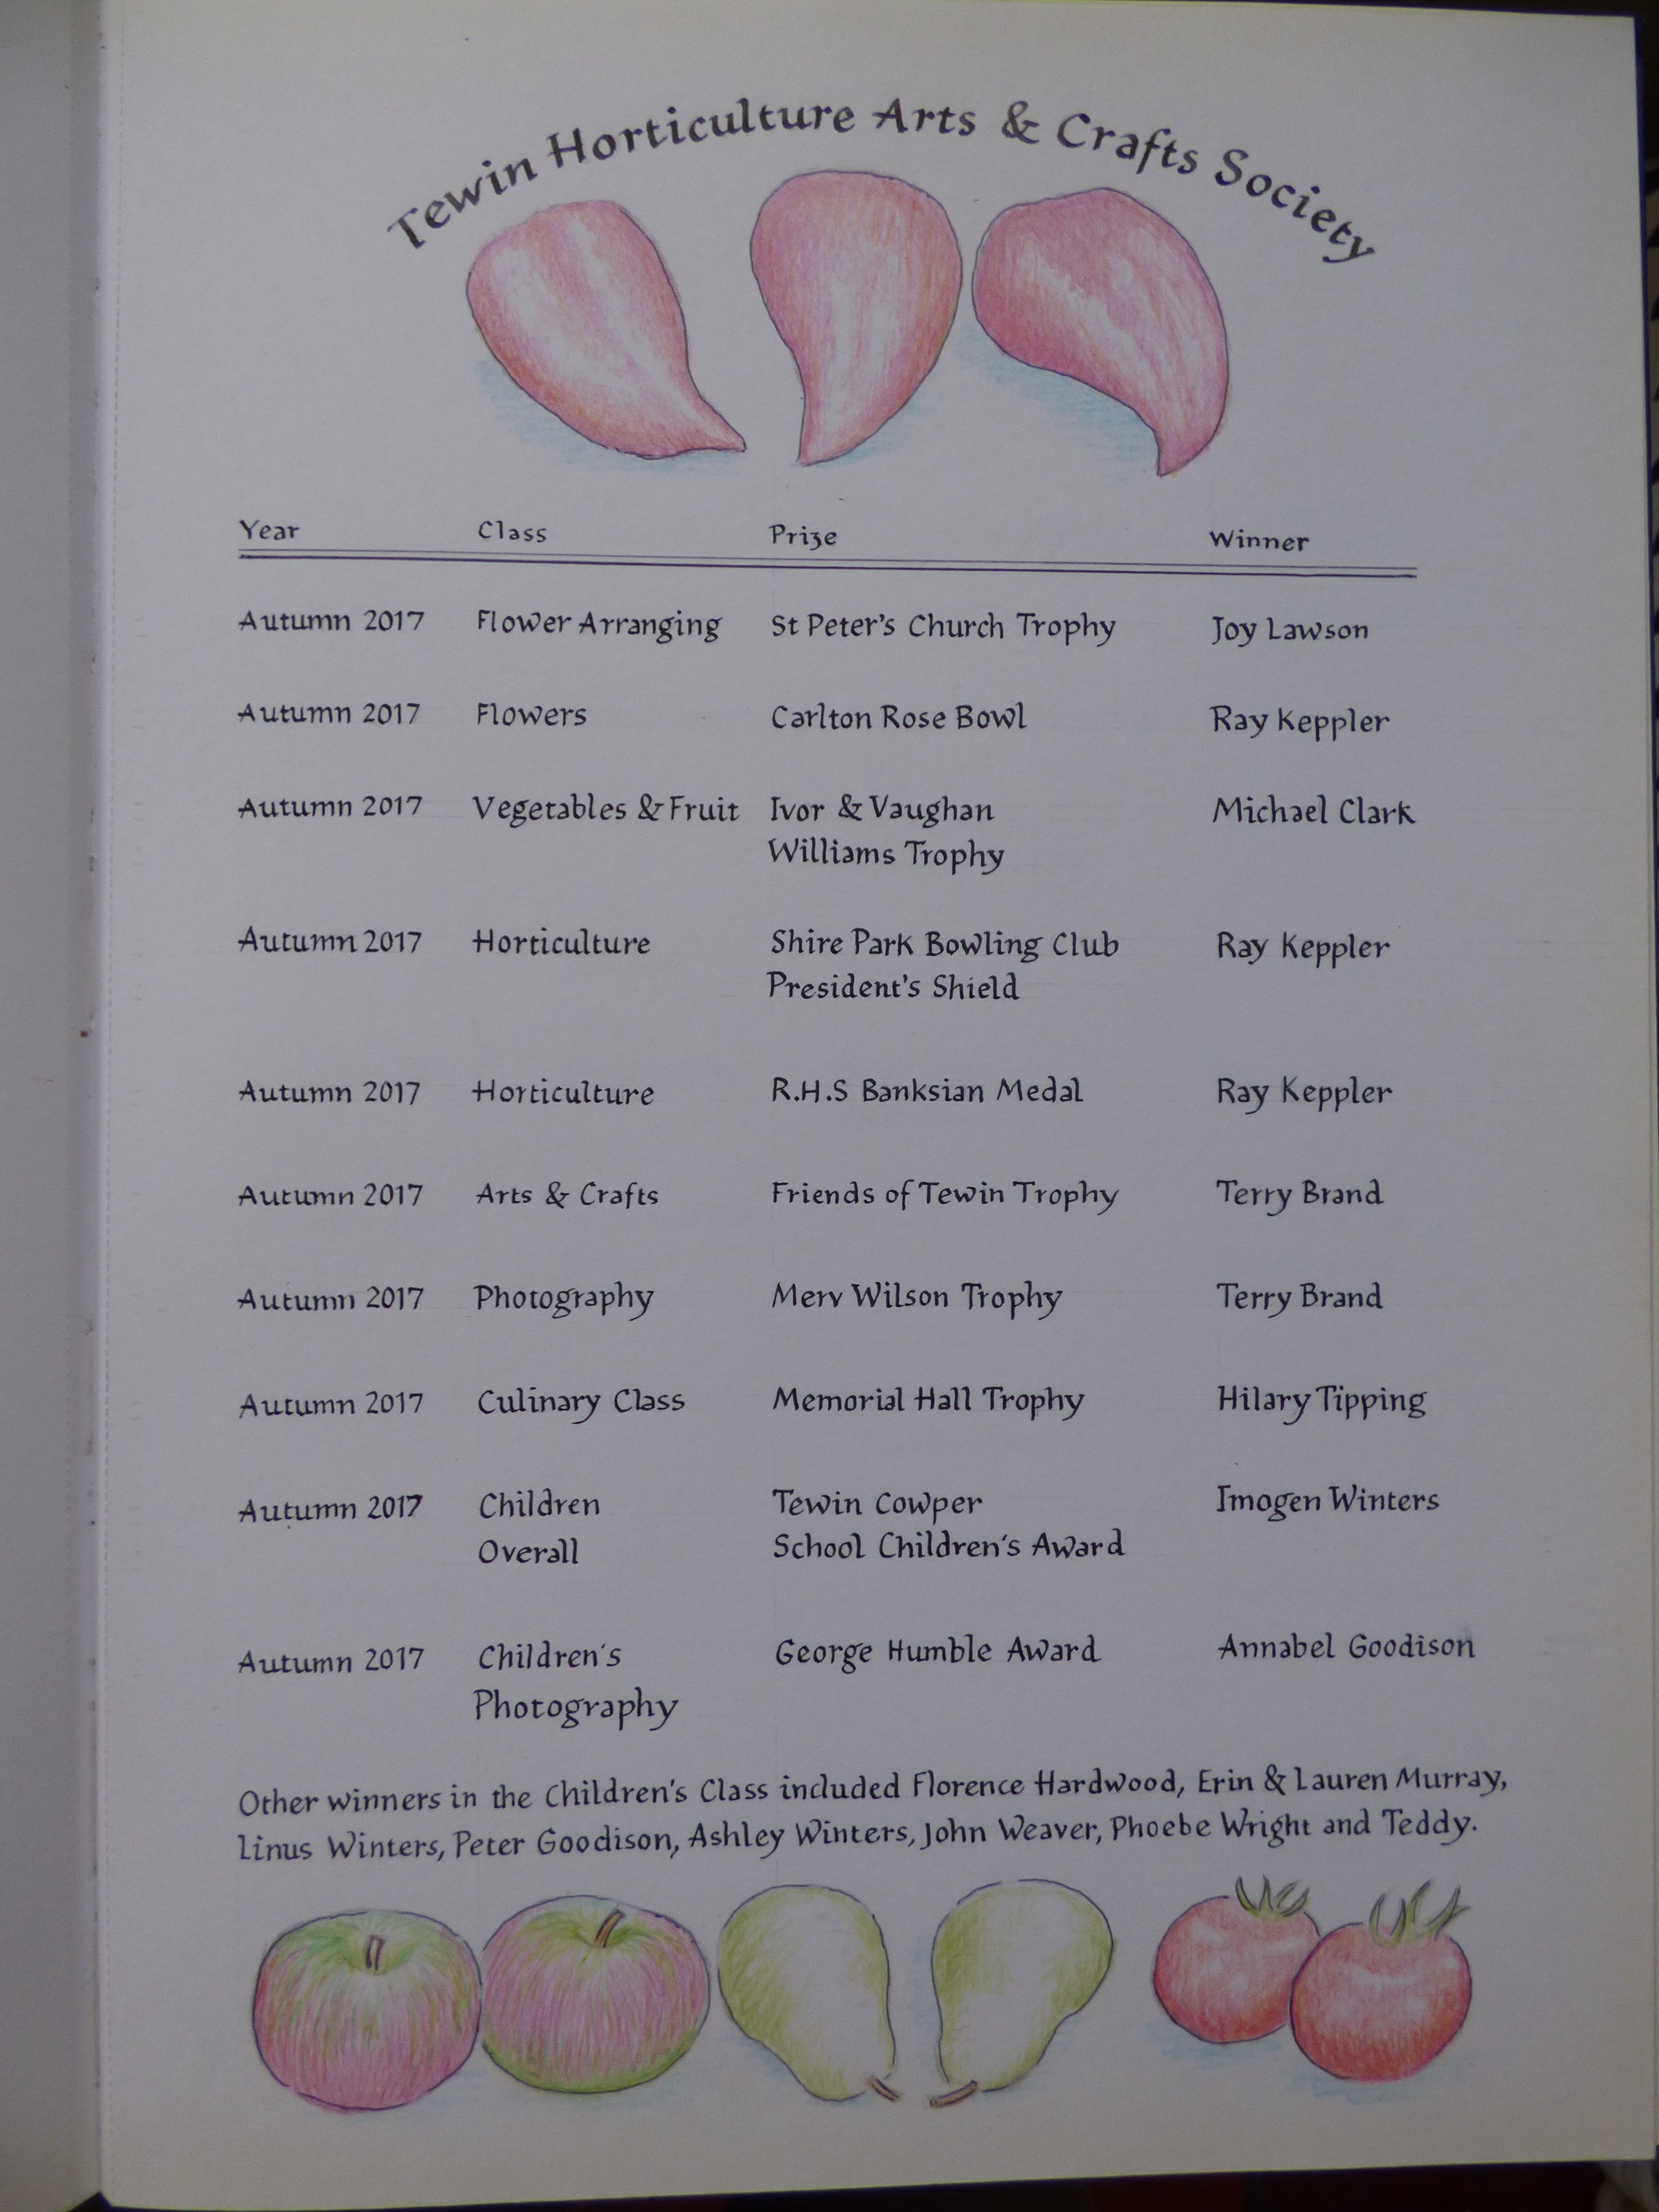 Tewin Horticulture Arts & Crafts Society
Year Class Prize Winner
Autumn 2017 Flower Arranging St Peter's Church Trophy Joy Lawson
Autumn 2017 Flowers Carlton Rose Bowl Ray Keppler
Autumn 2017 Vegetables & Fruit Ivor & Vaughan Michael Clark
Williams Trophy
Autumn 2017 Horticulture Shire Park Bowling Club Ray Keppler
President's Shield
Autumn 2017 Horticulture R.H.S Banksian Medal Ray Keppler
Autumn 2017 Arts & Crafts Friends of Tewin Trophy Terry Brand
Autumn 2017 Photography Merv Wilson Trophy Terry Brand
Autumn 2017 Culinary Class Memorial Hall Trophy Hilary Tipping
Autumn 2017 Children Tewin Cowper Imogen Winters
Overall School Children's Award
Autumn 2017 Children's George Humble Award Annabel Goodison
Photography
Other winners in the Children's Class included Florence Hardwood, Erin & Lauren Murray,
Linus Winters, Peter Goodison, Ashley Winters, John Weaver, Phoebe Wright and Teddy.